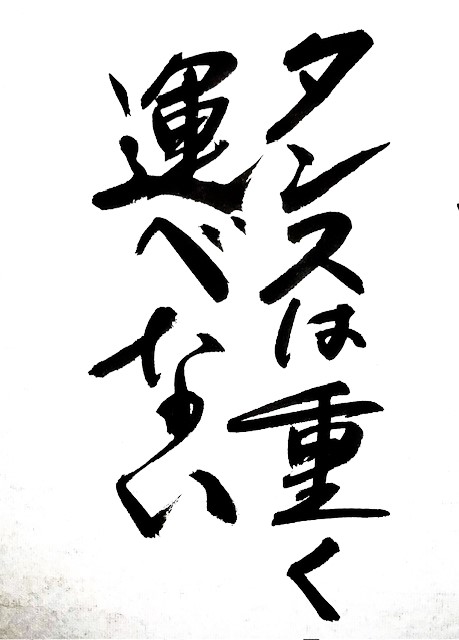 タンスは重く
運べない